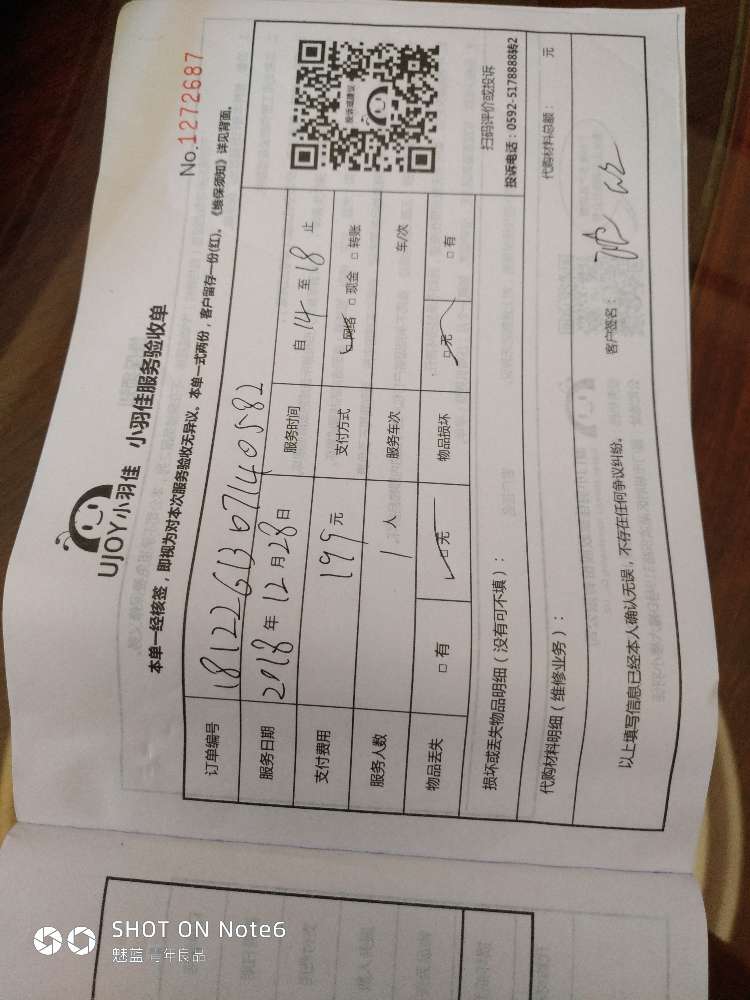 UJOY小羽佳 小羽佳服务验收单
No.1272687
本单一经核签,即视为对本次服务验收无异议。本单一式两份,客户留存一份(红)。《维保须知》详见背面。
订单编号 181226130714 0582
服务日期 2018年12月28日 服务时间 自14至18止
支付费用 199元 支付方式 □网络 □现金 □转账
服务人数 1人 服务车次 车/次
物品丢失 □有 □无 物品损坏 □无 □有
投诉或建议
扫码评价或投诉
投诉电话:0592-5178888转2
损坏或丢失物品明细(没有可不填):
代购材料明细(维修业务): 代购材料总额: 元
以上填写信息已经本人确认无误,不存在任何争议纠纷。 客户签名:
SHOT ON Note6
魅蓝 青年良品